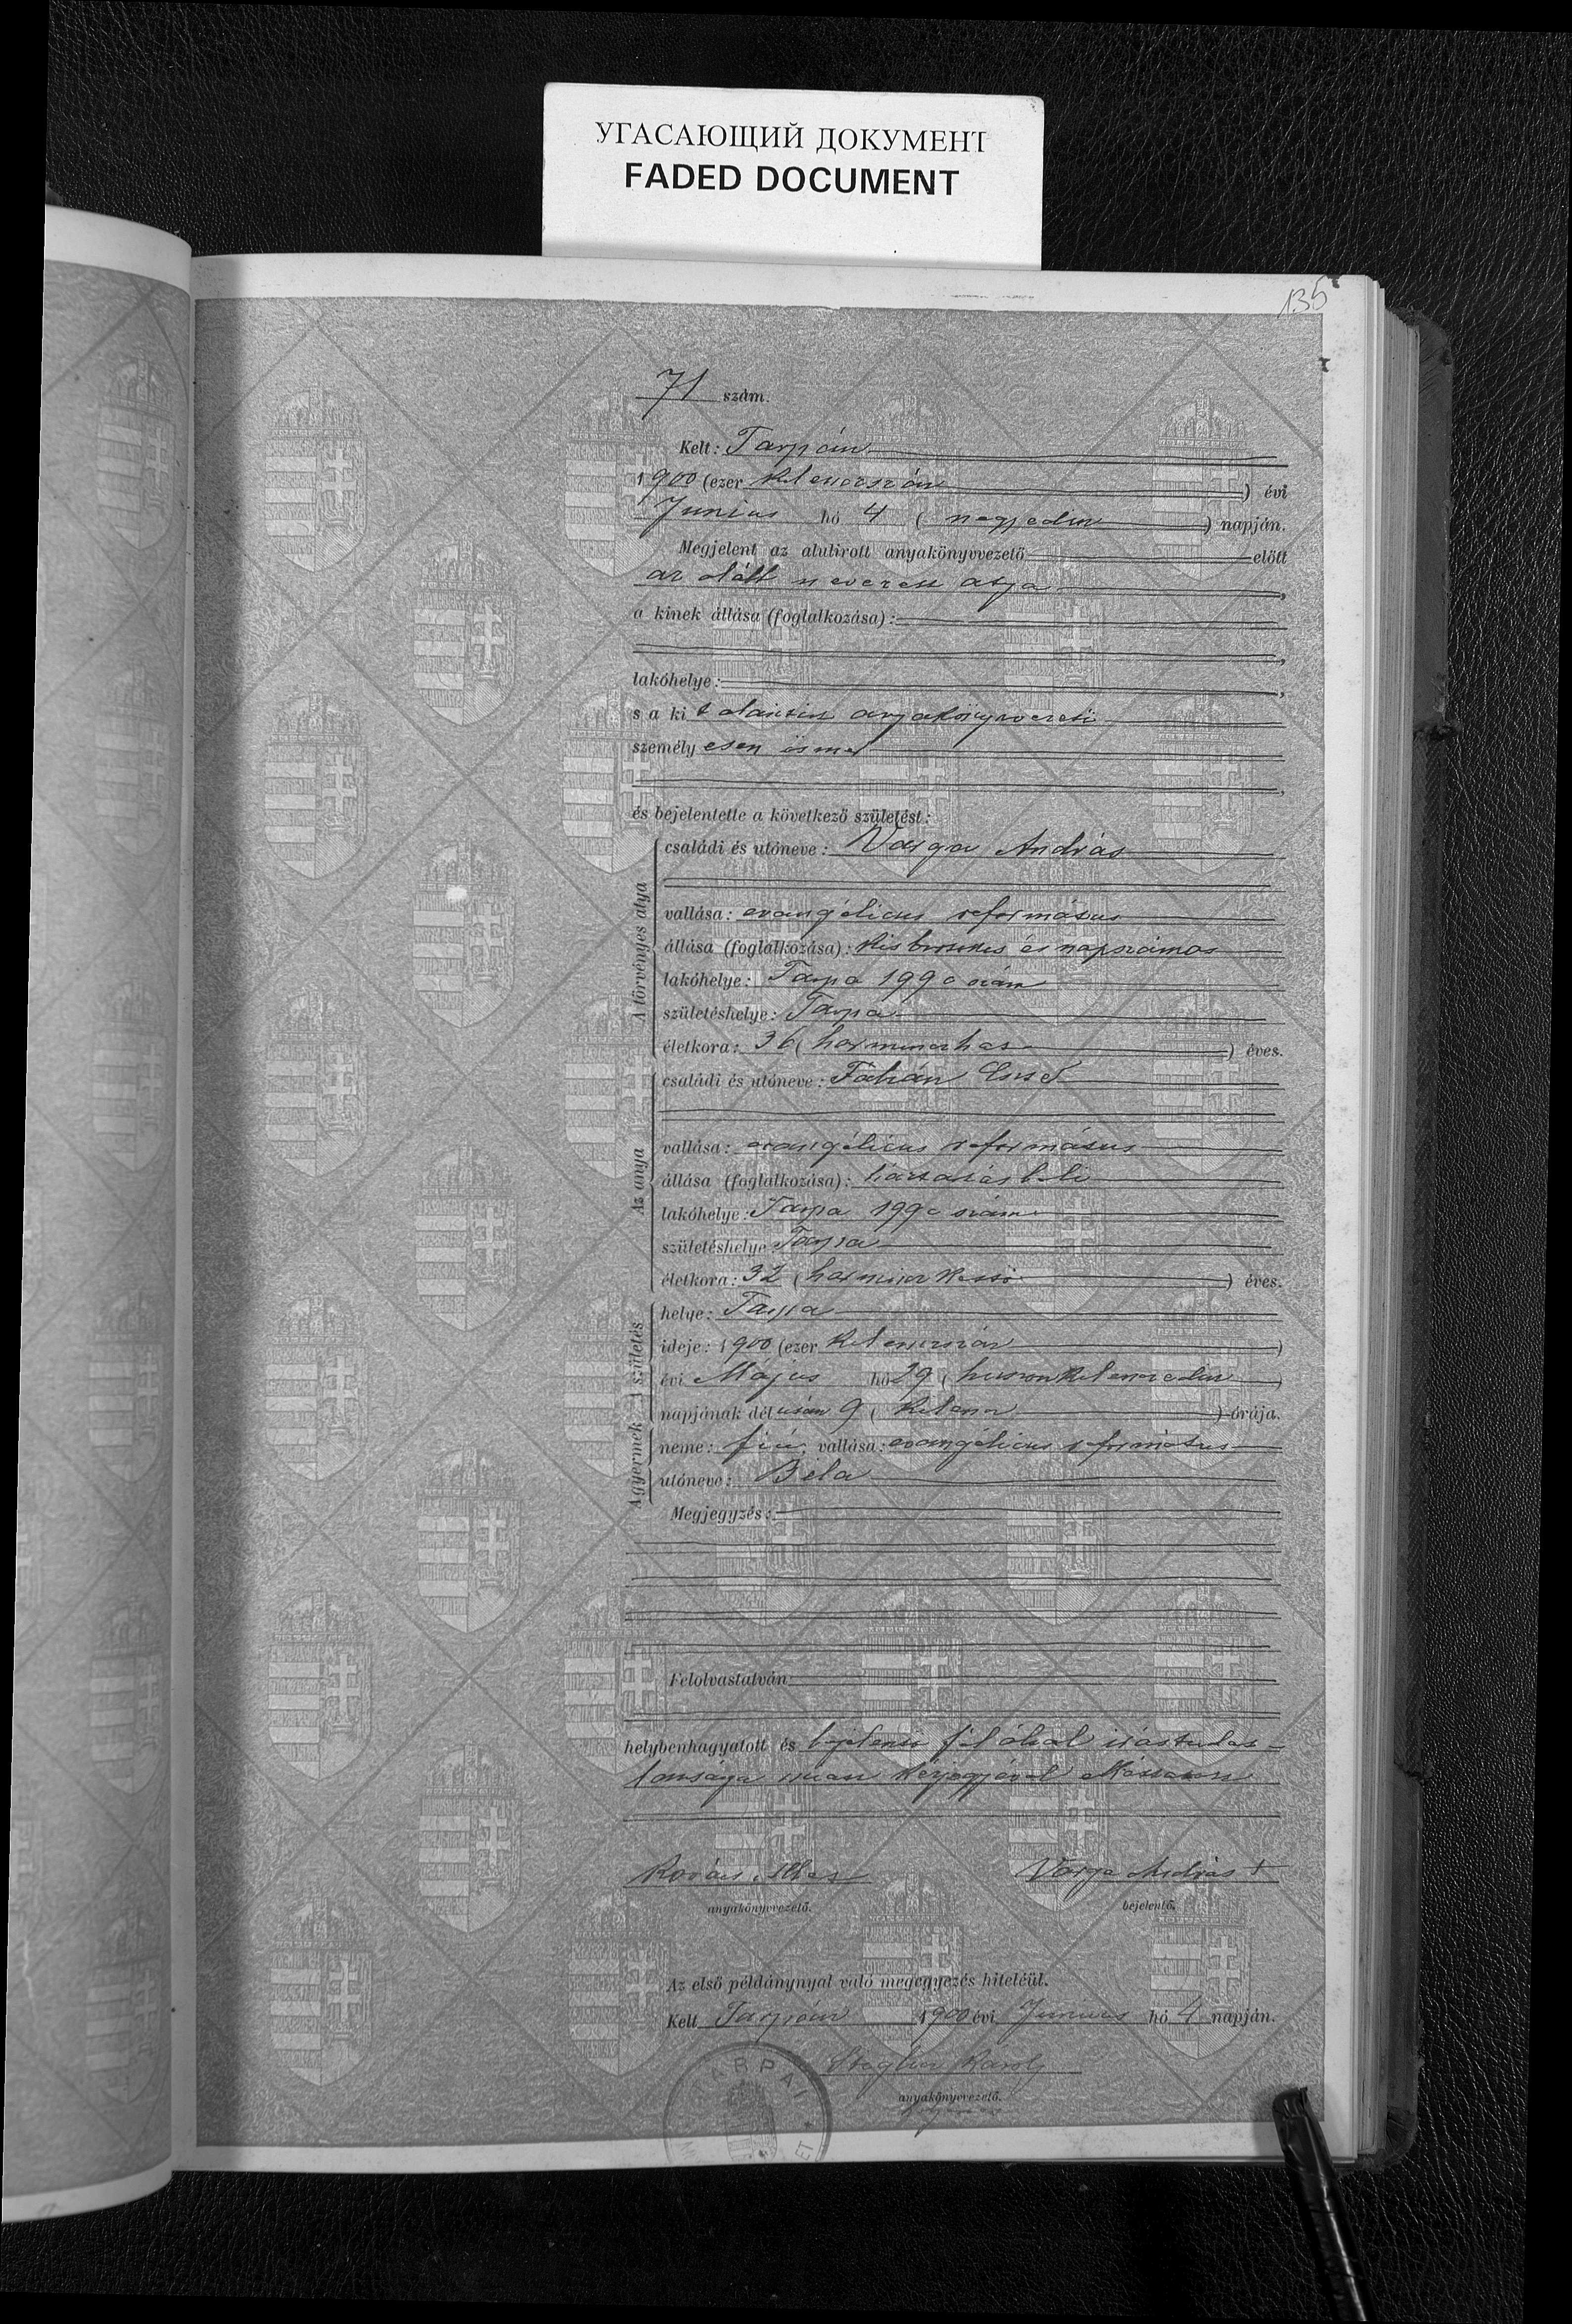 УГАСАЮЩИЙ ДОКУМЕНТ
FADED DOCUMENT
135
71 szám.
Kelt: Tarpán
1900 (ezer kilencszáz) évi
Junius hó 4 (negyedik) napján.
Megjelent az alulirott anyakönyvvezető előtt
az alább nevezett atya,
a kinek állása (foglalkozása):
lakóhelye:
s a kit alantirt anyakönyvvezető
személyesen ismer
és bejelentette a következő születést:
A törvényes atya
családi és utóneve: Varga András
vallása: evangélicus református
állása (foglalkozása): kisbirtokos és napszámos
lakóhelye: Tarpa 199 szám
születéshelye: Tarpa
életkora: 36 (harminchat) éves.
Az anya
családi és utóneve: Fábián
vallása: evangélicus református
állása (foglalkozása): háztartásbeli
lakóhelye: Tarpa 199 szám
születéshelye: Tarpa
életkora: 32 (harminckettő) éves.
A születés
helye: Tarpa
ideje: 1900 (ezer kilencszáz)
évi Május hó 29 (huszonkilencedik)
napjának délután 9 (kilenc) órája.
A gyermek
neme: fiú; vallása: evangélicus református
utóneve: Béla
Megjegyzés:
Felolvastatván
helybenhagyatott és bejelentő fél által írástudat-
lansága miatt kézjegyével
Kovács
Varga András +
anyakönyvvezető.
bejelentő.
Az első példánynyal való megegyezés hiteléül.
Kelt Tarpán 1900 évi Junius hó 4 napján.
Károly
anyakönyvvezető.
TARPAI